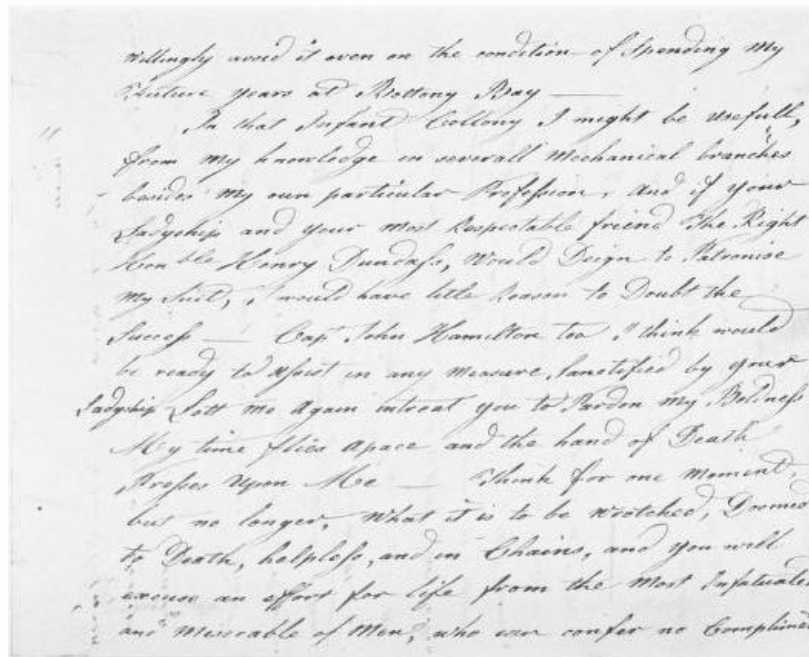 willingly avoid it even on the condition of Spending My
Future years at Bottony Bay —
In that Infant Collony I might be usefull,
from my knowledge in severall Mechanical branches
besides my own particular Profession, And if your
Ladyship and your Most Respectable friend The Right
Honble Henry Dundass, Would Deign to Patronise
My Suit, I would have little Reason to Doubt the
Success — Capt John Hamilton too I think would
be ready to Assist in any Measure, Sanctified by your
Ladyship Lett me Again intreat you to Pardon my Boldness
My time flies apace and the hand of Death
Presses Upon Me — Think for one Moment,
but no longer, What it is to be wretched, Doomed
to Death, helpless, and in Chains, and you will
excuse an effort for life from the Most Infatuated
and Miserable of Men, who can confer no Compliment